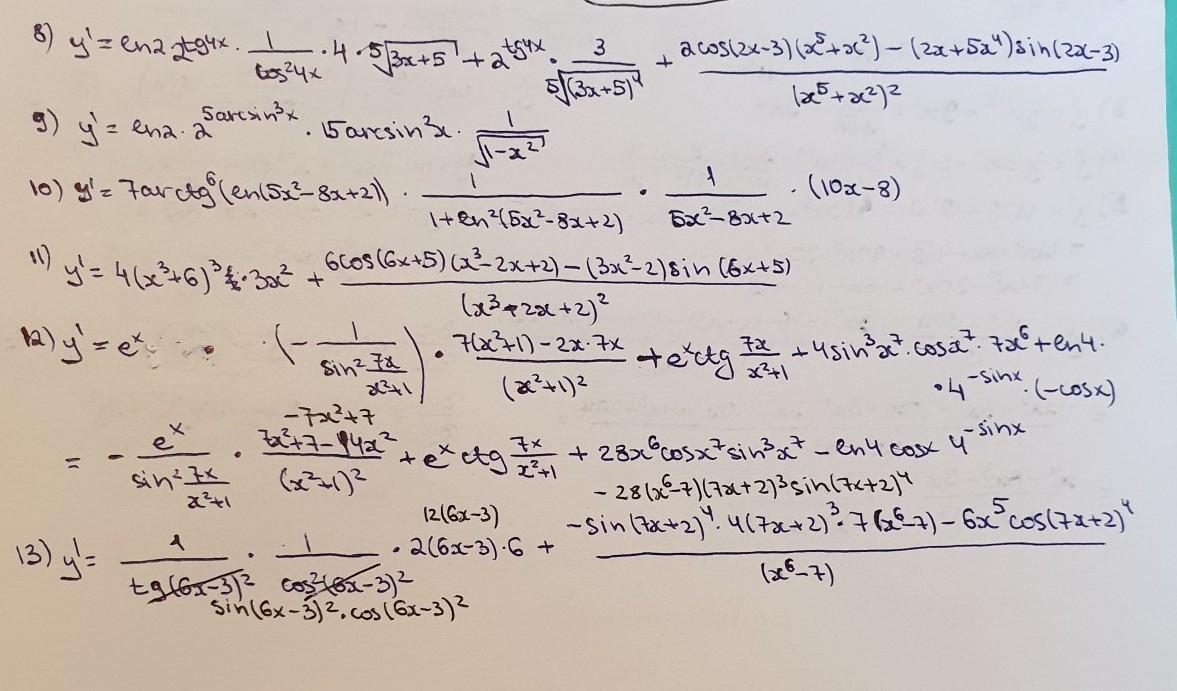 8) y' = ln2 2^tg4x · 1/cos²4x · 4 · ⁵√(3x+5) + 2^tg4x · 3/5√(3x+5)⁴ + (2cos(2x-3)(x⁵+x²) - (2x+5x⁴)sin(2x-3))/(x⁵+x²)²
9) y' = ln2 · 2^(5arcsin³x) · 15arcsin²x · 1/√(1-x²)
10) y' = 7arctg⁶(ln(5x²-8x+2)) · 1/(1+ln²(5x²-8x+2)) · 1/(5x²-8x+2) · (10x-8)
11) y' = 4(x³+6)³ · 3x² + (6cos(6x+5)(x³-2x+2) - (3x²-2)sin(6x+5))/(x³-2x+2)²
12) y' = eˣ · (- 1/sin² 7x/(x²+1)) · (7(x²+1) - 2x·7x)/(x²+1)² + eˣctg 7x/(x²+1) + 4sin³x⁷·cosx⁷·7x⁶ + ln4·
·4^(-sinx)·(-cosx)
-7x²+7
= - eˣ/sin² 7x/(x²+1) · (7x²+7-14x²)/(x²+1)² + eˣctg 7x/(x²+1) + 28x⁶cosx⁷sin³x⁷ - ln4 cosx 4^(-sinx)
-28(x⁶-7)(7x+2)³sin(7x+2)⁴
12(6x-3)
13) y' = 1/tg(6x-3)² · 1/cos²(6x-3)² · 2(6x-3)·6 + (-sin(7x+2)⁴·4(7x+2)³·7(x⁶-7) - 6x⁵cos(7x+2)⁴)/(x⁶-7)
sin(6x-3)²·cos(6x-3)²